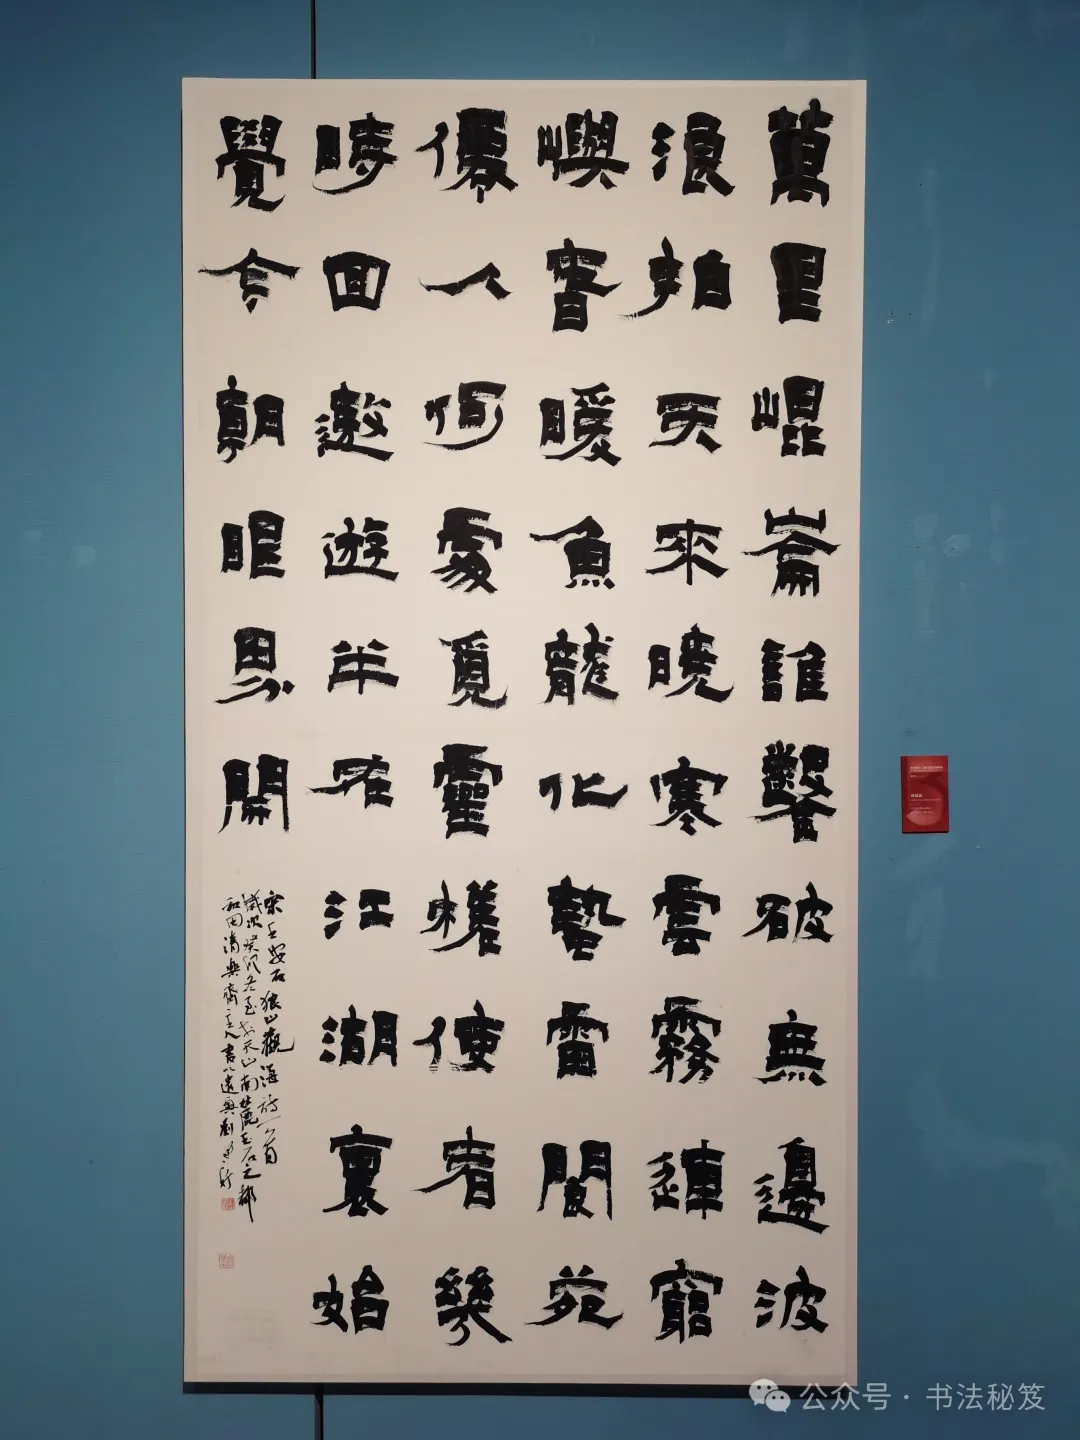 萬里崐崙誰鑿破無邊波
浪拍天來曉寒雲霧連窮
嶼春暖魚龍化蟄雷閬苑
僊人何處覓靈槎使者幾
時回遨遊半在江湖裏始
覺今朝眼界開
宋王安石狼山觀海詩一首
歲次癸卯冬至於天山南麓玉石之都
和田清樂齋主人書以遣興劉
公众号·书法秘笈